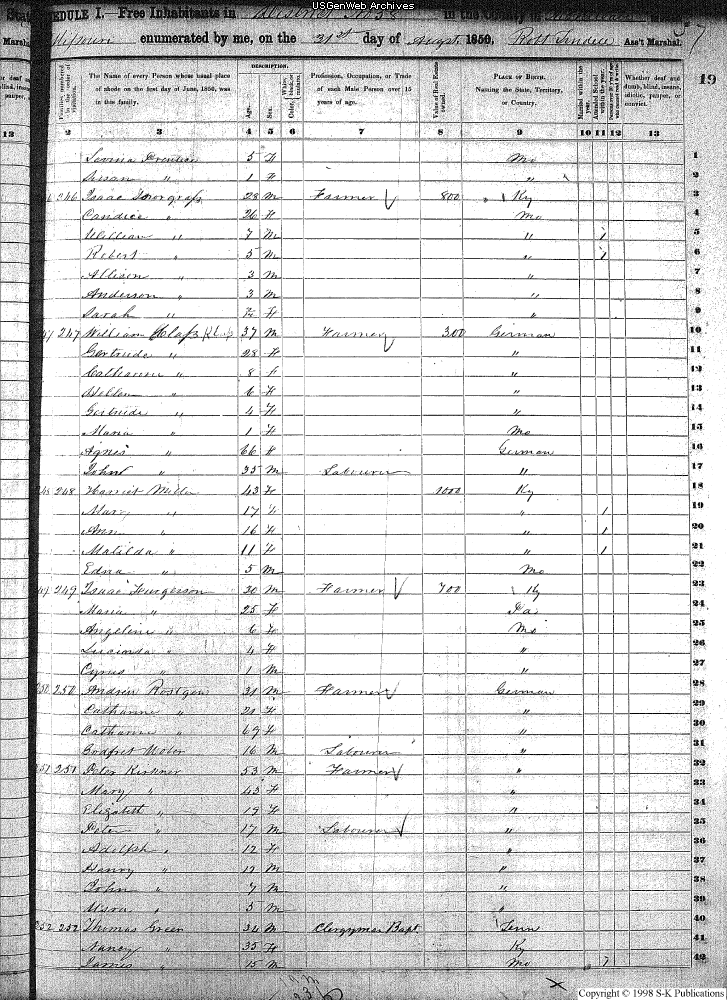 USGenWeb Archives
SCHEDULE I.—Free Inhabitants in District No 58 in the County of
Missouri enumerated by me, on the 31st day of Augst 1850. Robt Ass't Marshal.
19
The Name of every Person whose usual place of abode on the first day of June, 1850, was in this family.
DESCRIPTION.
Age. Sex. Color.
Profession, Occupation, or Trade of each Male Person over 15 years of age.
Value of Real Estate owned.
PLACE OF BIRTH. Naming the State, Territory, or Country.
Married within the year. Attended School within the year.
Whether deaf and dumb, blind, insane, idiotic, pauper, or convict.
13 2 3 4 5 6 7 8 9 10 11 12 13
5 F Mo 1
Susan " 1 F " 2
246 Isaac Snorgrass 28 M Farmer 800 Ky 3
Candice " 26 F Mo 4
William " 7 M " 1 5
Robert " 5 M " 1 6
Allison " 3 M " 7
Anderson " 3 M " 8
Sarah " F " 9
247 William Klass 37 M Farmer 300 German 10
Gertrude " 28 F " 11
Catharine " 8 F " 12
" 6 F " 13
Gertrude " 4 F " 14
Maria " 1 F Mo 15
Agnes " 66 F German 16
John " 35 M Labourer " 17
248 248 Harriet Miller 43 F 1000 Ky 18
Mary " 17 F " 1 19
Ann " 16 F " 1 20
Matilda " 11 F " 1 21
Edna " 5 M Mo 22
249 Isaac Furgerson 30 M Farmer 700 Ky 23
Maria " 25 F Pa 24
Angeline " 6 F Mo 25
Lucinda " 4 F " 26
Cyrus " 1 M " 27
250 250 Andrew Rostgen 31 M Farmer German 28
Catharine " 21 F " 29
Catharine " 69 F " 30
Godfret 16 M Labourer " 31
251 251 Peter Kirkner 53 M Farmer " 32
Mary " 43 F " 33
Elizabeth " 19 F " 34
Peter " 17 M Labourer " 35
Adolph " 12 F " 36
Henry " 12 M " 37
John " 7 M " 38
" 5 M " 39
252 252 Thomas Green 34 M Clergyman Bapt Tenn 40
Nancy " 35 F Ky 41
James " 15 M Mo 1 42
Copyright © 1998 S-K Publications